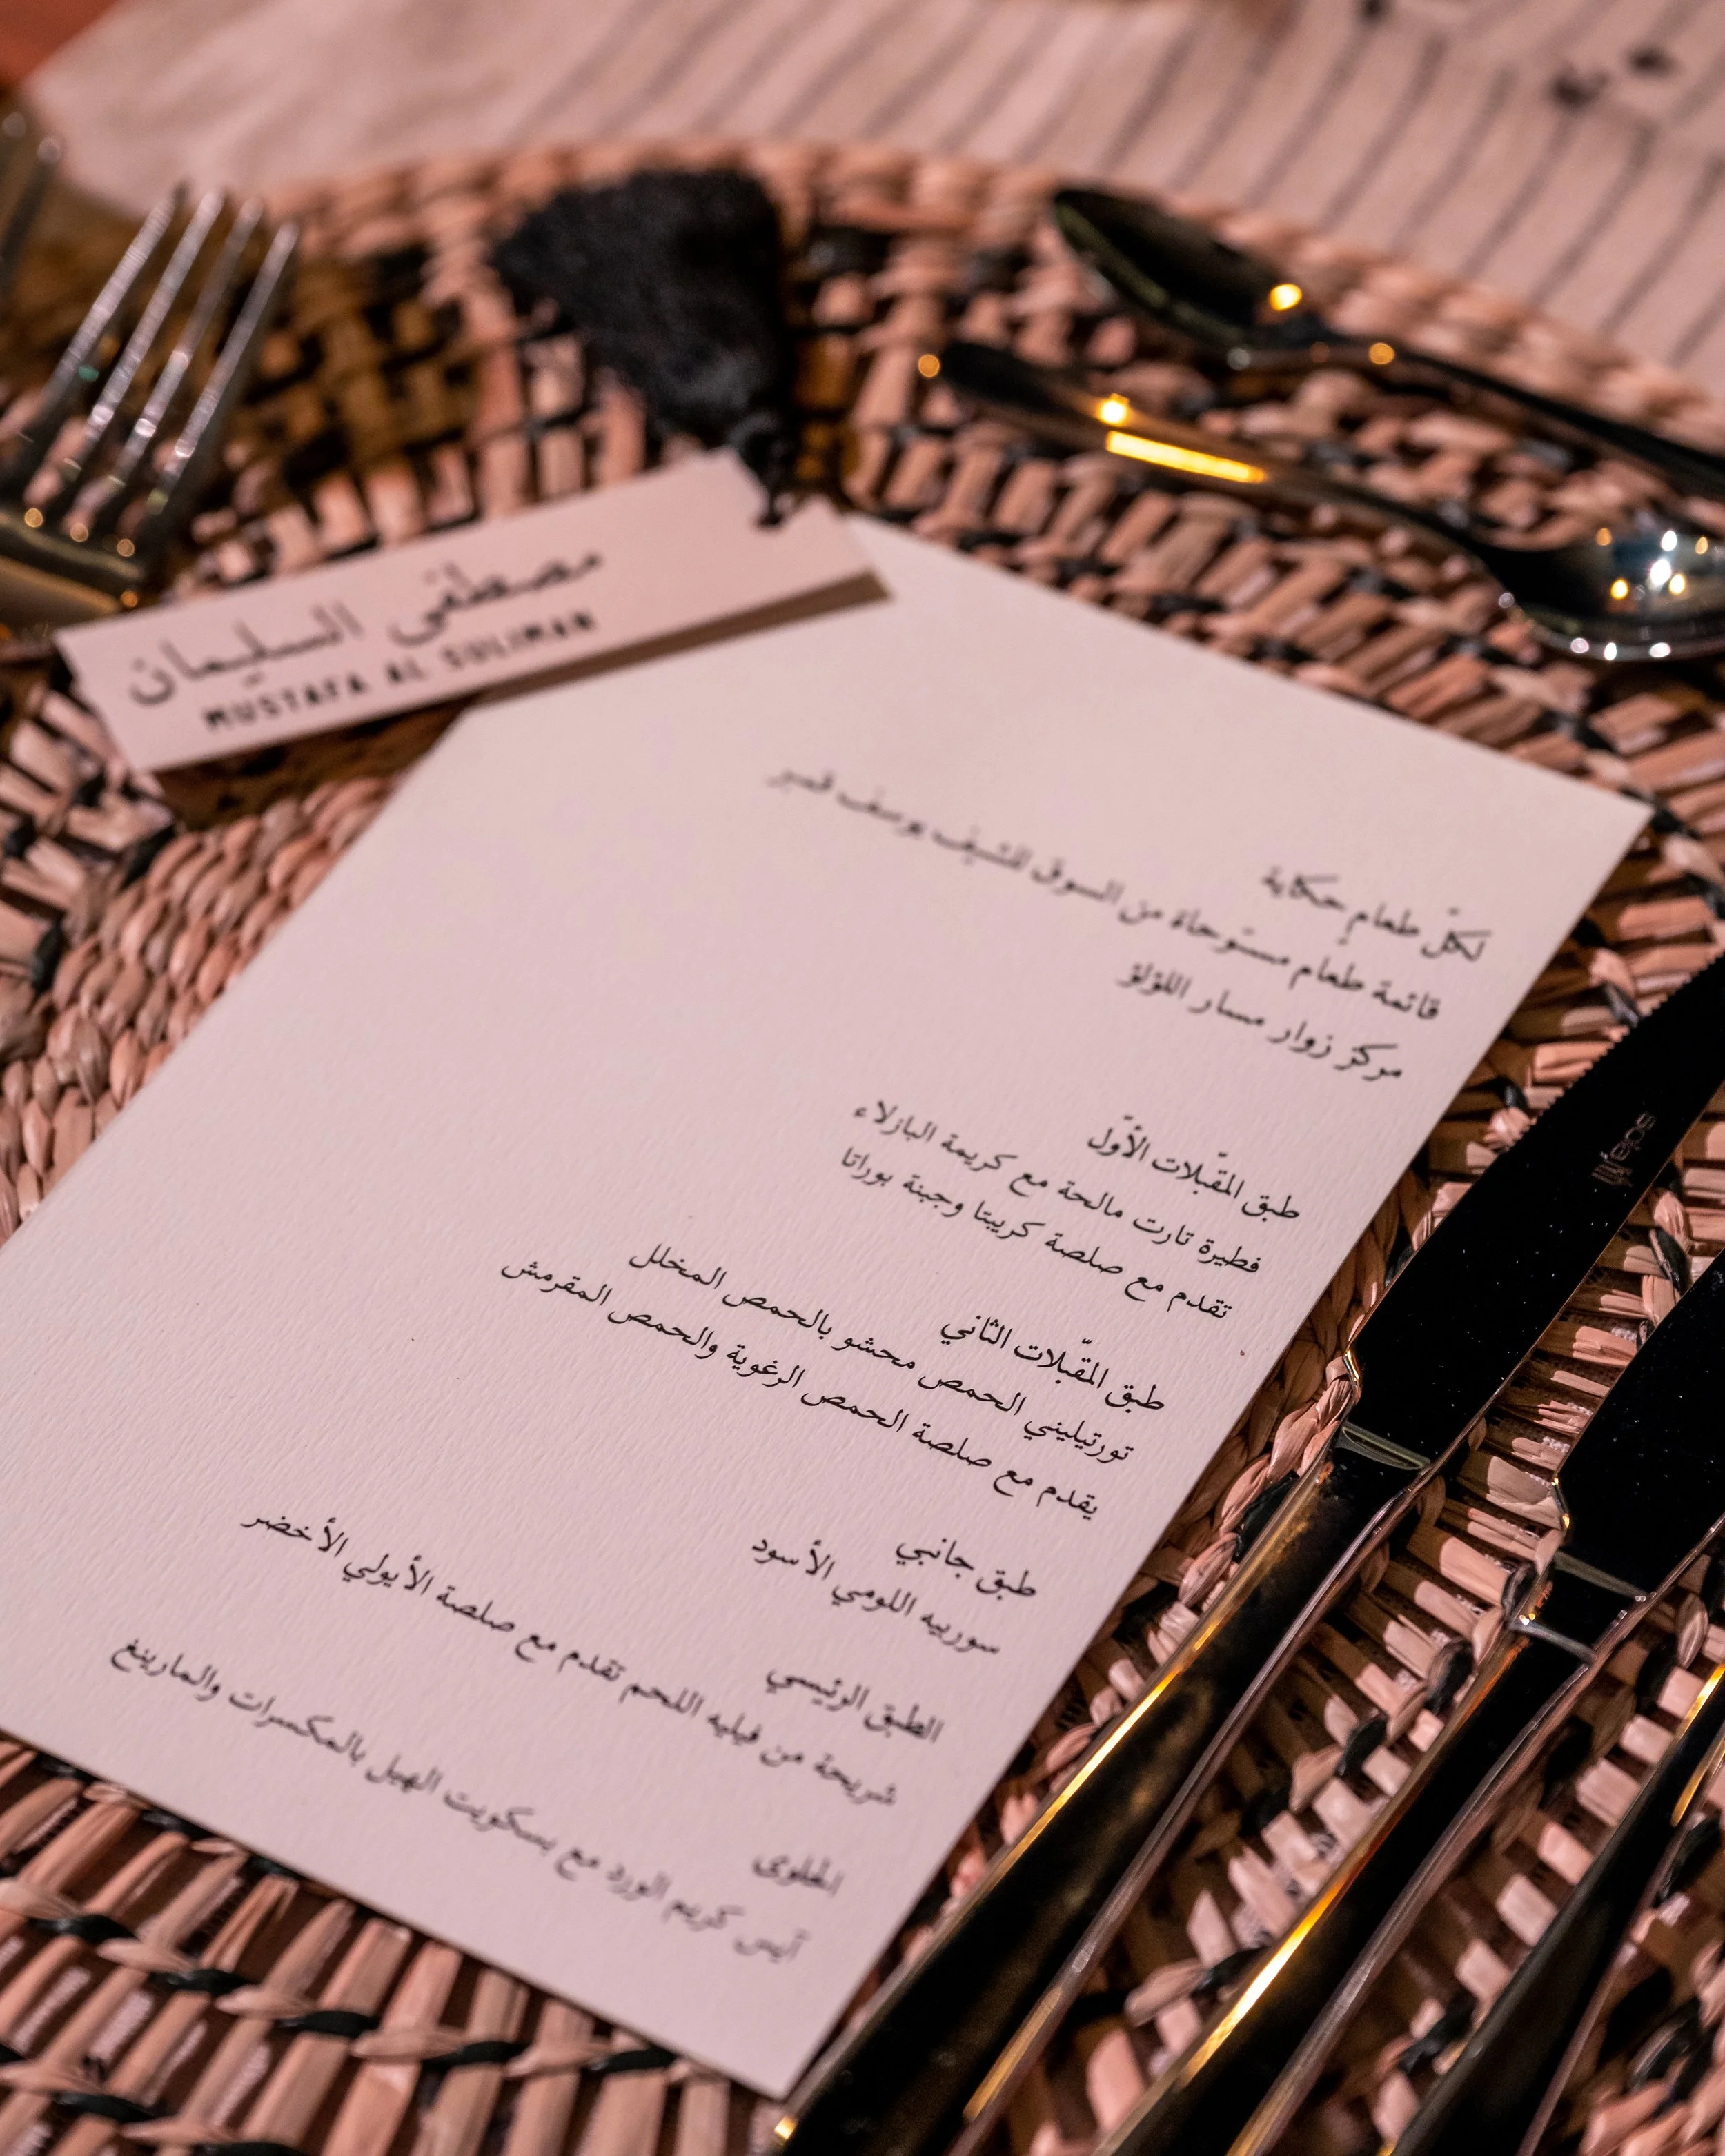 مصطفى السليمان
MUSTAFA AL SULIMAN
لكلّ طعامٍ حكاية
قائمة طعام مستوحاة من السوق للشيف يوسف قمبر
مركز زوار مسار اللؤلؤ
طبق المقبّلات الأوّل
فطيرة تارت مالحة مع كريمة البازلاء
تقدم مع صلصة كريبتا وجبنة بوراتا
طبق المقبّلات الثاني
تورتيليني الحمص محشو بالحمص المخلل
يقدم مع صلصة الحمص الرغوية والحمص المقرمش
طبق جانبي
سوربيه اللومي الأسود
الطبق الرئيسي
شريحة من فيليه اللحم تقدم مع صلصة الأيولي الأخضر
الحلوى
آيس كريم الورد مع بسكويت الهيل بالمكسرات والمارينغ